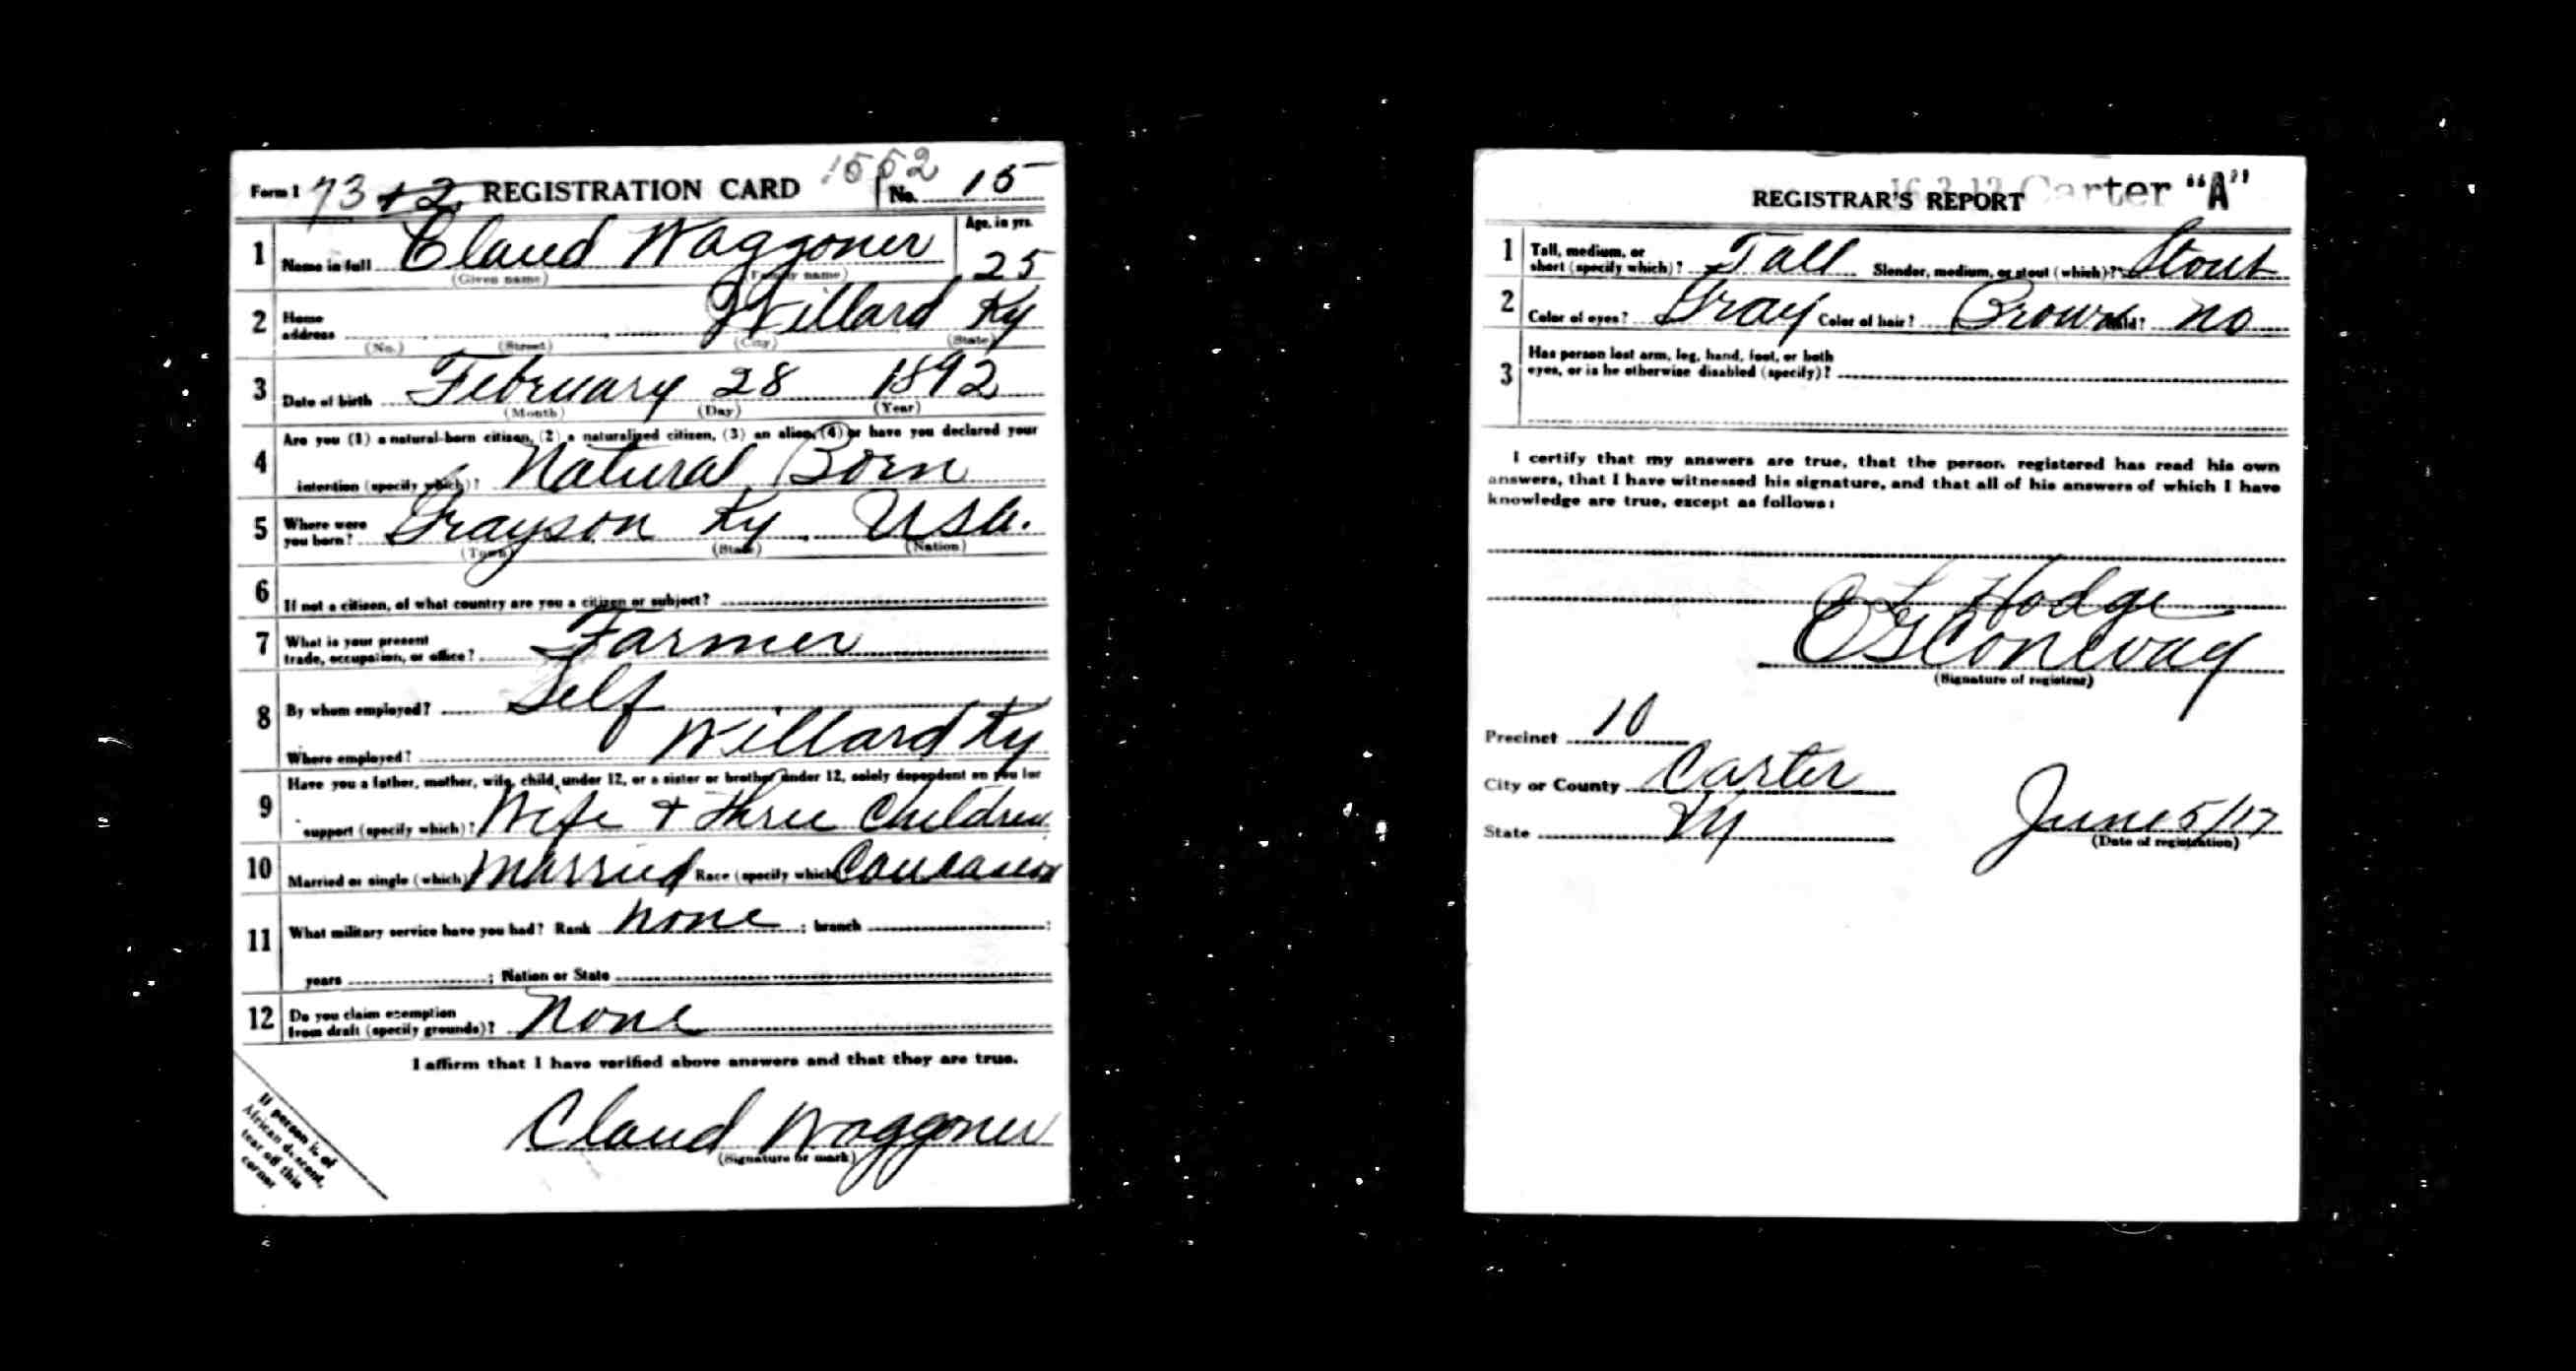 Form 1 73 +2 REGISTRATION CARD 1552 No. 15
1 Name in full Claud Waggoner Age, in yrs. 25
(Given name) (Family name)
2 Home address Willard Ky
(No.) (Street) (City) (State)
3 Date of birth February 28 1892
(Month) (Day) (Year)
4 Are you (1) a natural-born citizen, (2) a naturalized citizen, (3) an alien, (4) or have you declared your
intention (specify which)? Natural Born
5 Where were you born? Grayson Ky USA.
(Town) (State) (Nation)
6 If not a citizen, of what country are you a citizen or subject?
7 What is your present
trade, occupation, or office? Farmer
8 By whom employed? Self
Where employed? Willard Ky
9 Have you a father, mother, wife, child under 12, or a sister or brother under 12, solely dependent on you for
support (specify which)? Wife + three Children
10 Married or single (which) Married Race (specify which) Caucasian
11 What military service have you had? Rank none ; branch ;
years ; Nation or State
12 Do you claim exemption
from draft (specify grounds)? None
I affirm that I have verified above answers and that they are true.
Claud Waggoner
(Signature or mark)
If person is of
African descent,
tear off this
corner
REGISTRAR'S REPORT Carter "A"
1 Tall, medium, or
short (specify which)? Tall Slender, medium, or stout (which)? Stout
2 Color of eyes? Gray Color of hair? Brown Bald? no
3 Has person lost arm, leg, hand, foot, or both
eyes, or is he otherwise disabled (specify)?
I certify that my answers are true, that the person registered has read his own
answers, that I have witnessed his signature, and that all of his answers of which I have
knowledge are true, except as follows:
Hodge
Conway
(Signature of registrar)
Precinct 10
City or County Carter
State Ky June 5/17
(Date of registration)